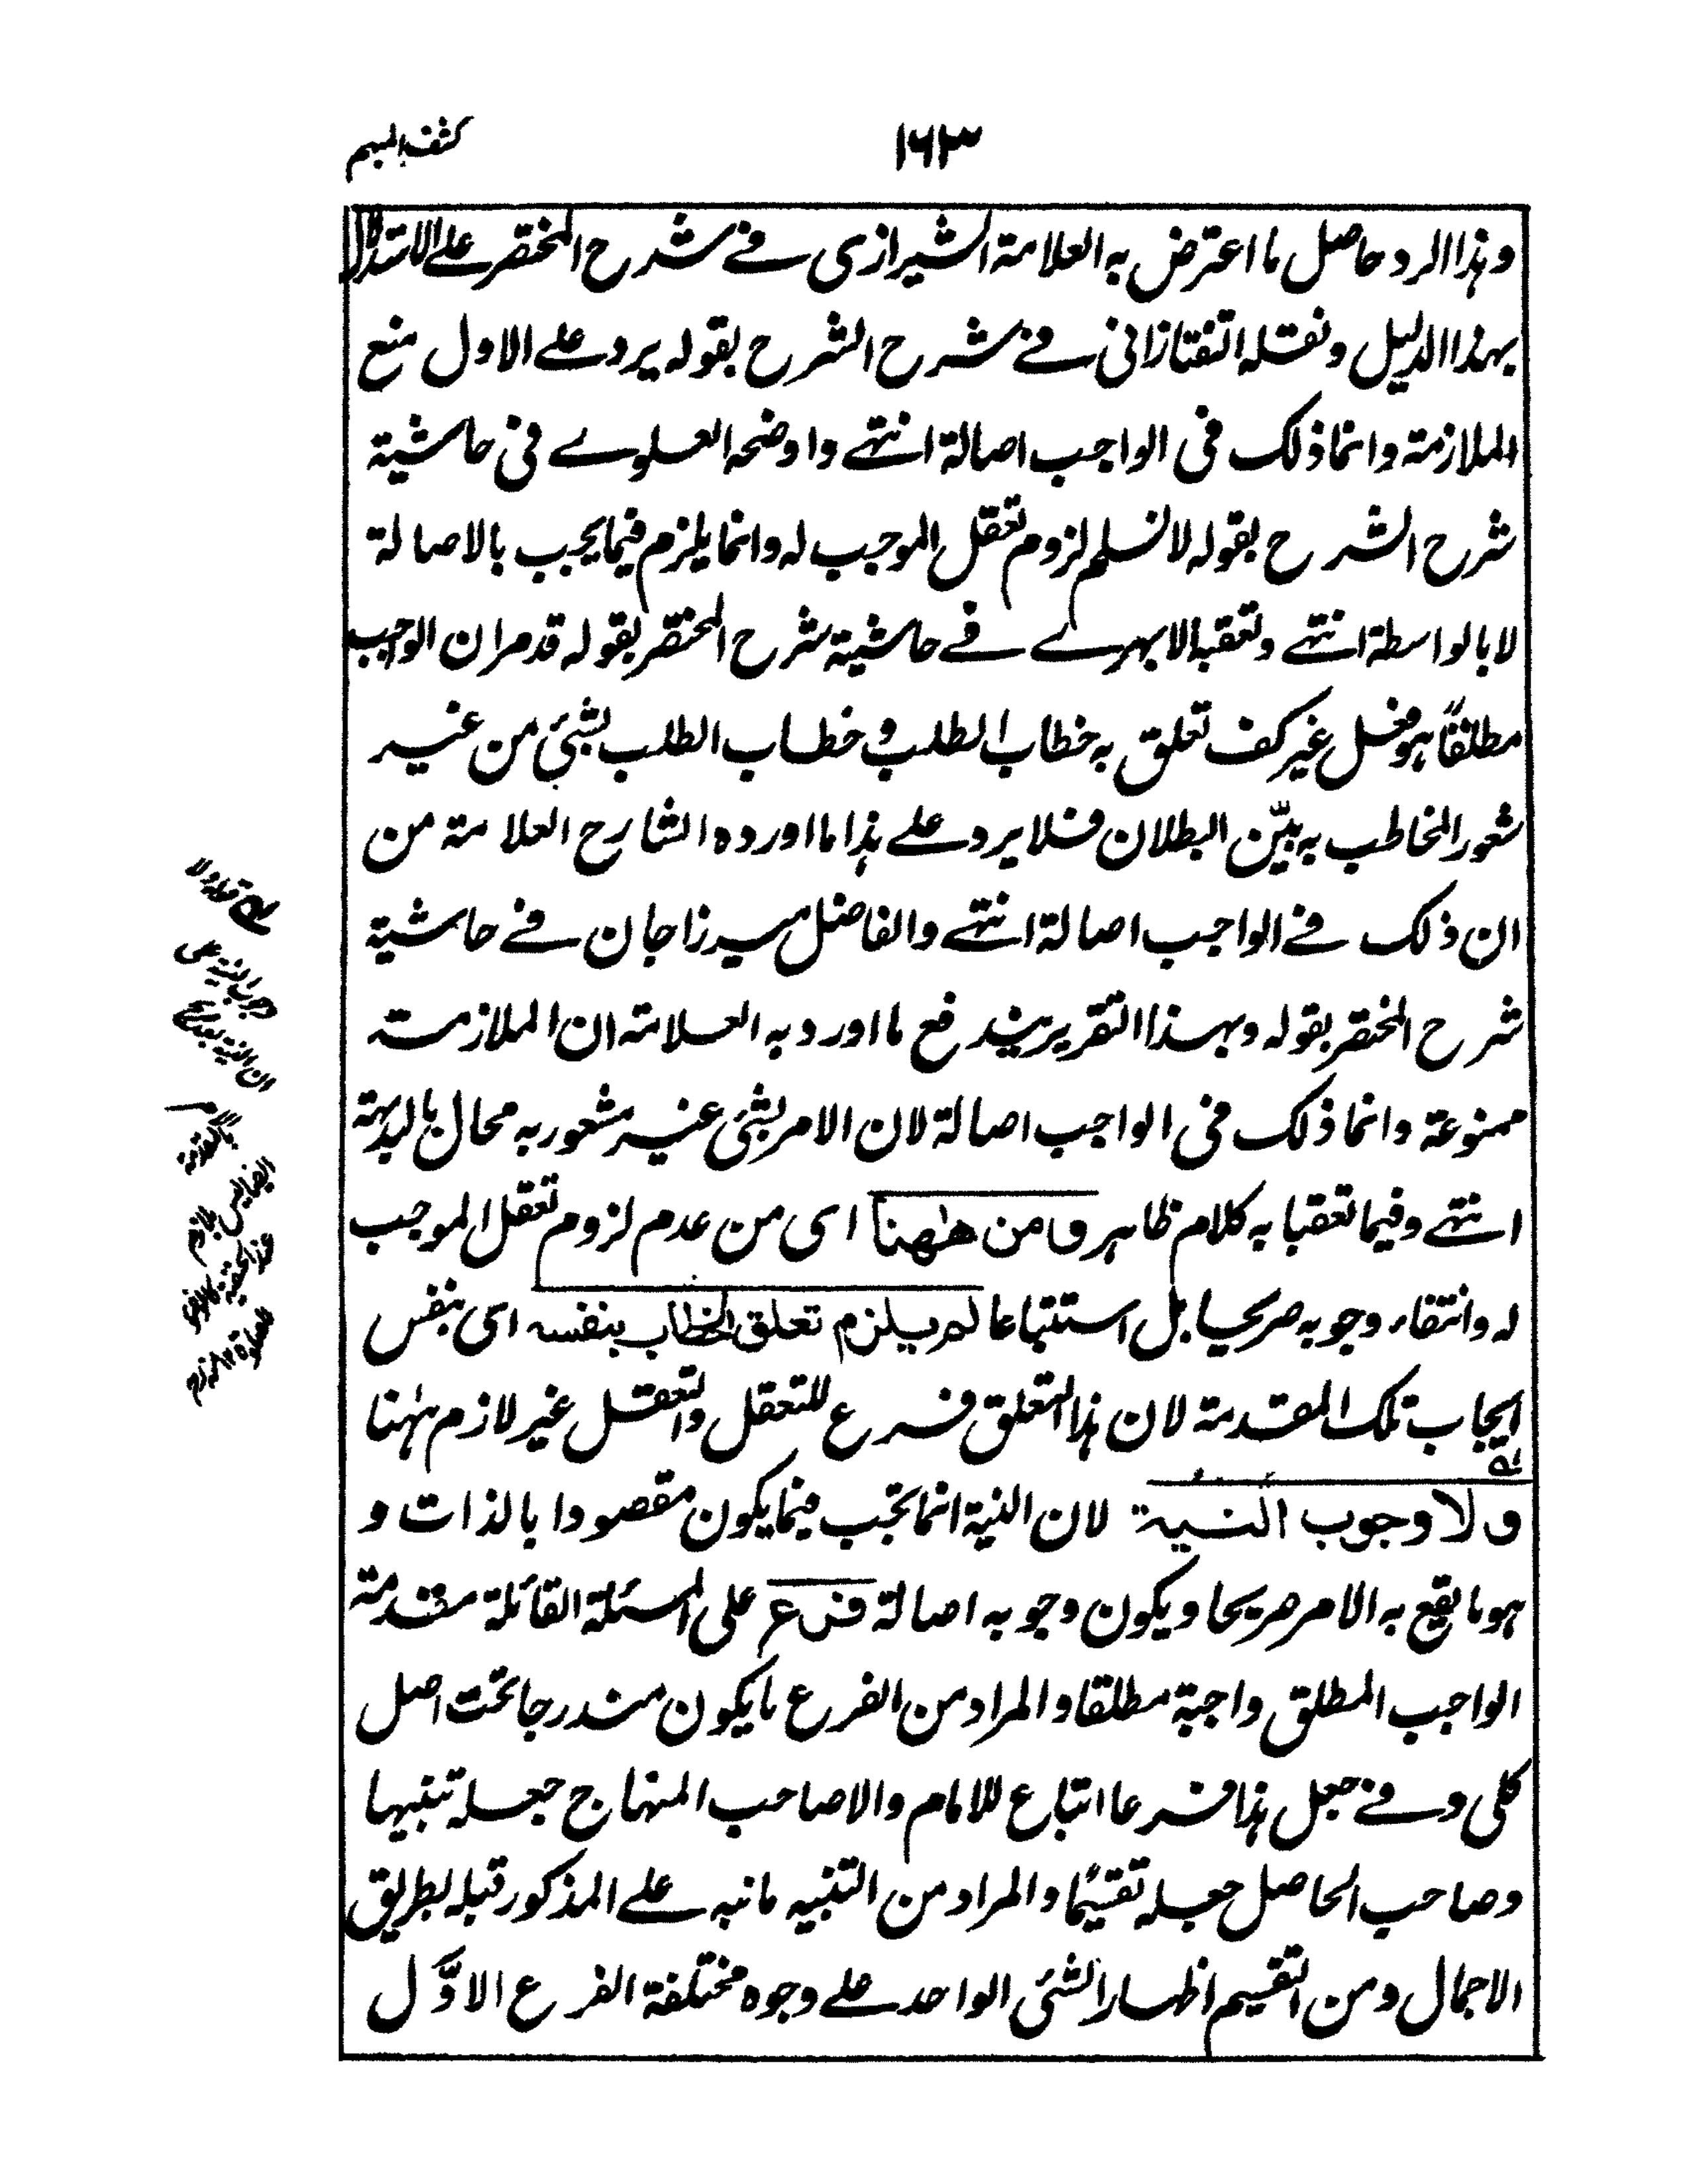 ١٦٣
كشف المبهم
وهذا الرد حاصل ما اعترض به العلامة الشيرازى فے شرح المختصر علے الاستدلال
بهذا الدليل ونقله التفتازانى فے شرح الشرح بقوله يرد علے الاول منع
الملازمة وانما ذلك فى الواجب اصالة انتهے واوضحه العلوے فى حاشية
شرح الشرح بقوله لا نسلم لزوم تعقل الموجب له وانما يلزم فيما يجب بالاصالة
لا بالواسطة انتهے وتعقبه الابهرے فے حاشية شرح المختصر بقوله قد مر ان الواجب
مطلقاً هو فعل غير كف تعلق به خطاب الطلب و خطاب الطلب بشئ من غير
شعور المخاطب به بيّن البطلان فلا يرد علے هذا ما اورده الشارح العلامة من
ان ذلك فے الواجب اصالة انتهے والفاضل ميرزاجان فے حاشية
شرح المختصر بقوله وبهذا التقرير يندفع ما اورد به العلامة ان الملازمة
ممنوعة وانما ذلك فى الواجب اصالة لان الامر بشئ غير مشعور به محال بالبديهة
انتهے وفيما تعقبا به كلام ظاهر ومن هٰهنا اى من عدم لزوم تعقل الموجب
له وانتفاء وجوبه صريحا بل استتباعا لم يلزم تعلق الخطاب بنفسه اى بنفس
ايجاب تلك المقدمة لان هذا التعلق فرع للتعقل والتعقل غير لازم هٰهنا
ولا وجوب النية لان النية انما تجب فيما يكون مقصودا بالذات و
هو ما يقع به الامر صريحا ويكون وجوبه اصالة فرع على المسئلة القائلة مقدمة
الواجب المطلق واجبة مطلقا والمراد من الفرع ما يكون مندرجا تحت اصل
كلى وفے جعل هذا فرعا اتباع للامام والا صاحب المنهاج جعله تنبيها
وصاحب الحاصل جعله تقسيمًا والمراد من التنبيه ما نبه علے المذكور قبله بطريق
الاجمال ومن التقسيم اظهار الشئ الواحد علے وجوه مختلفة الفرع الاوّل
قوله ولا
وجوب النية
ان النية